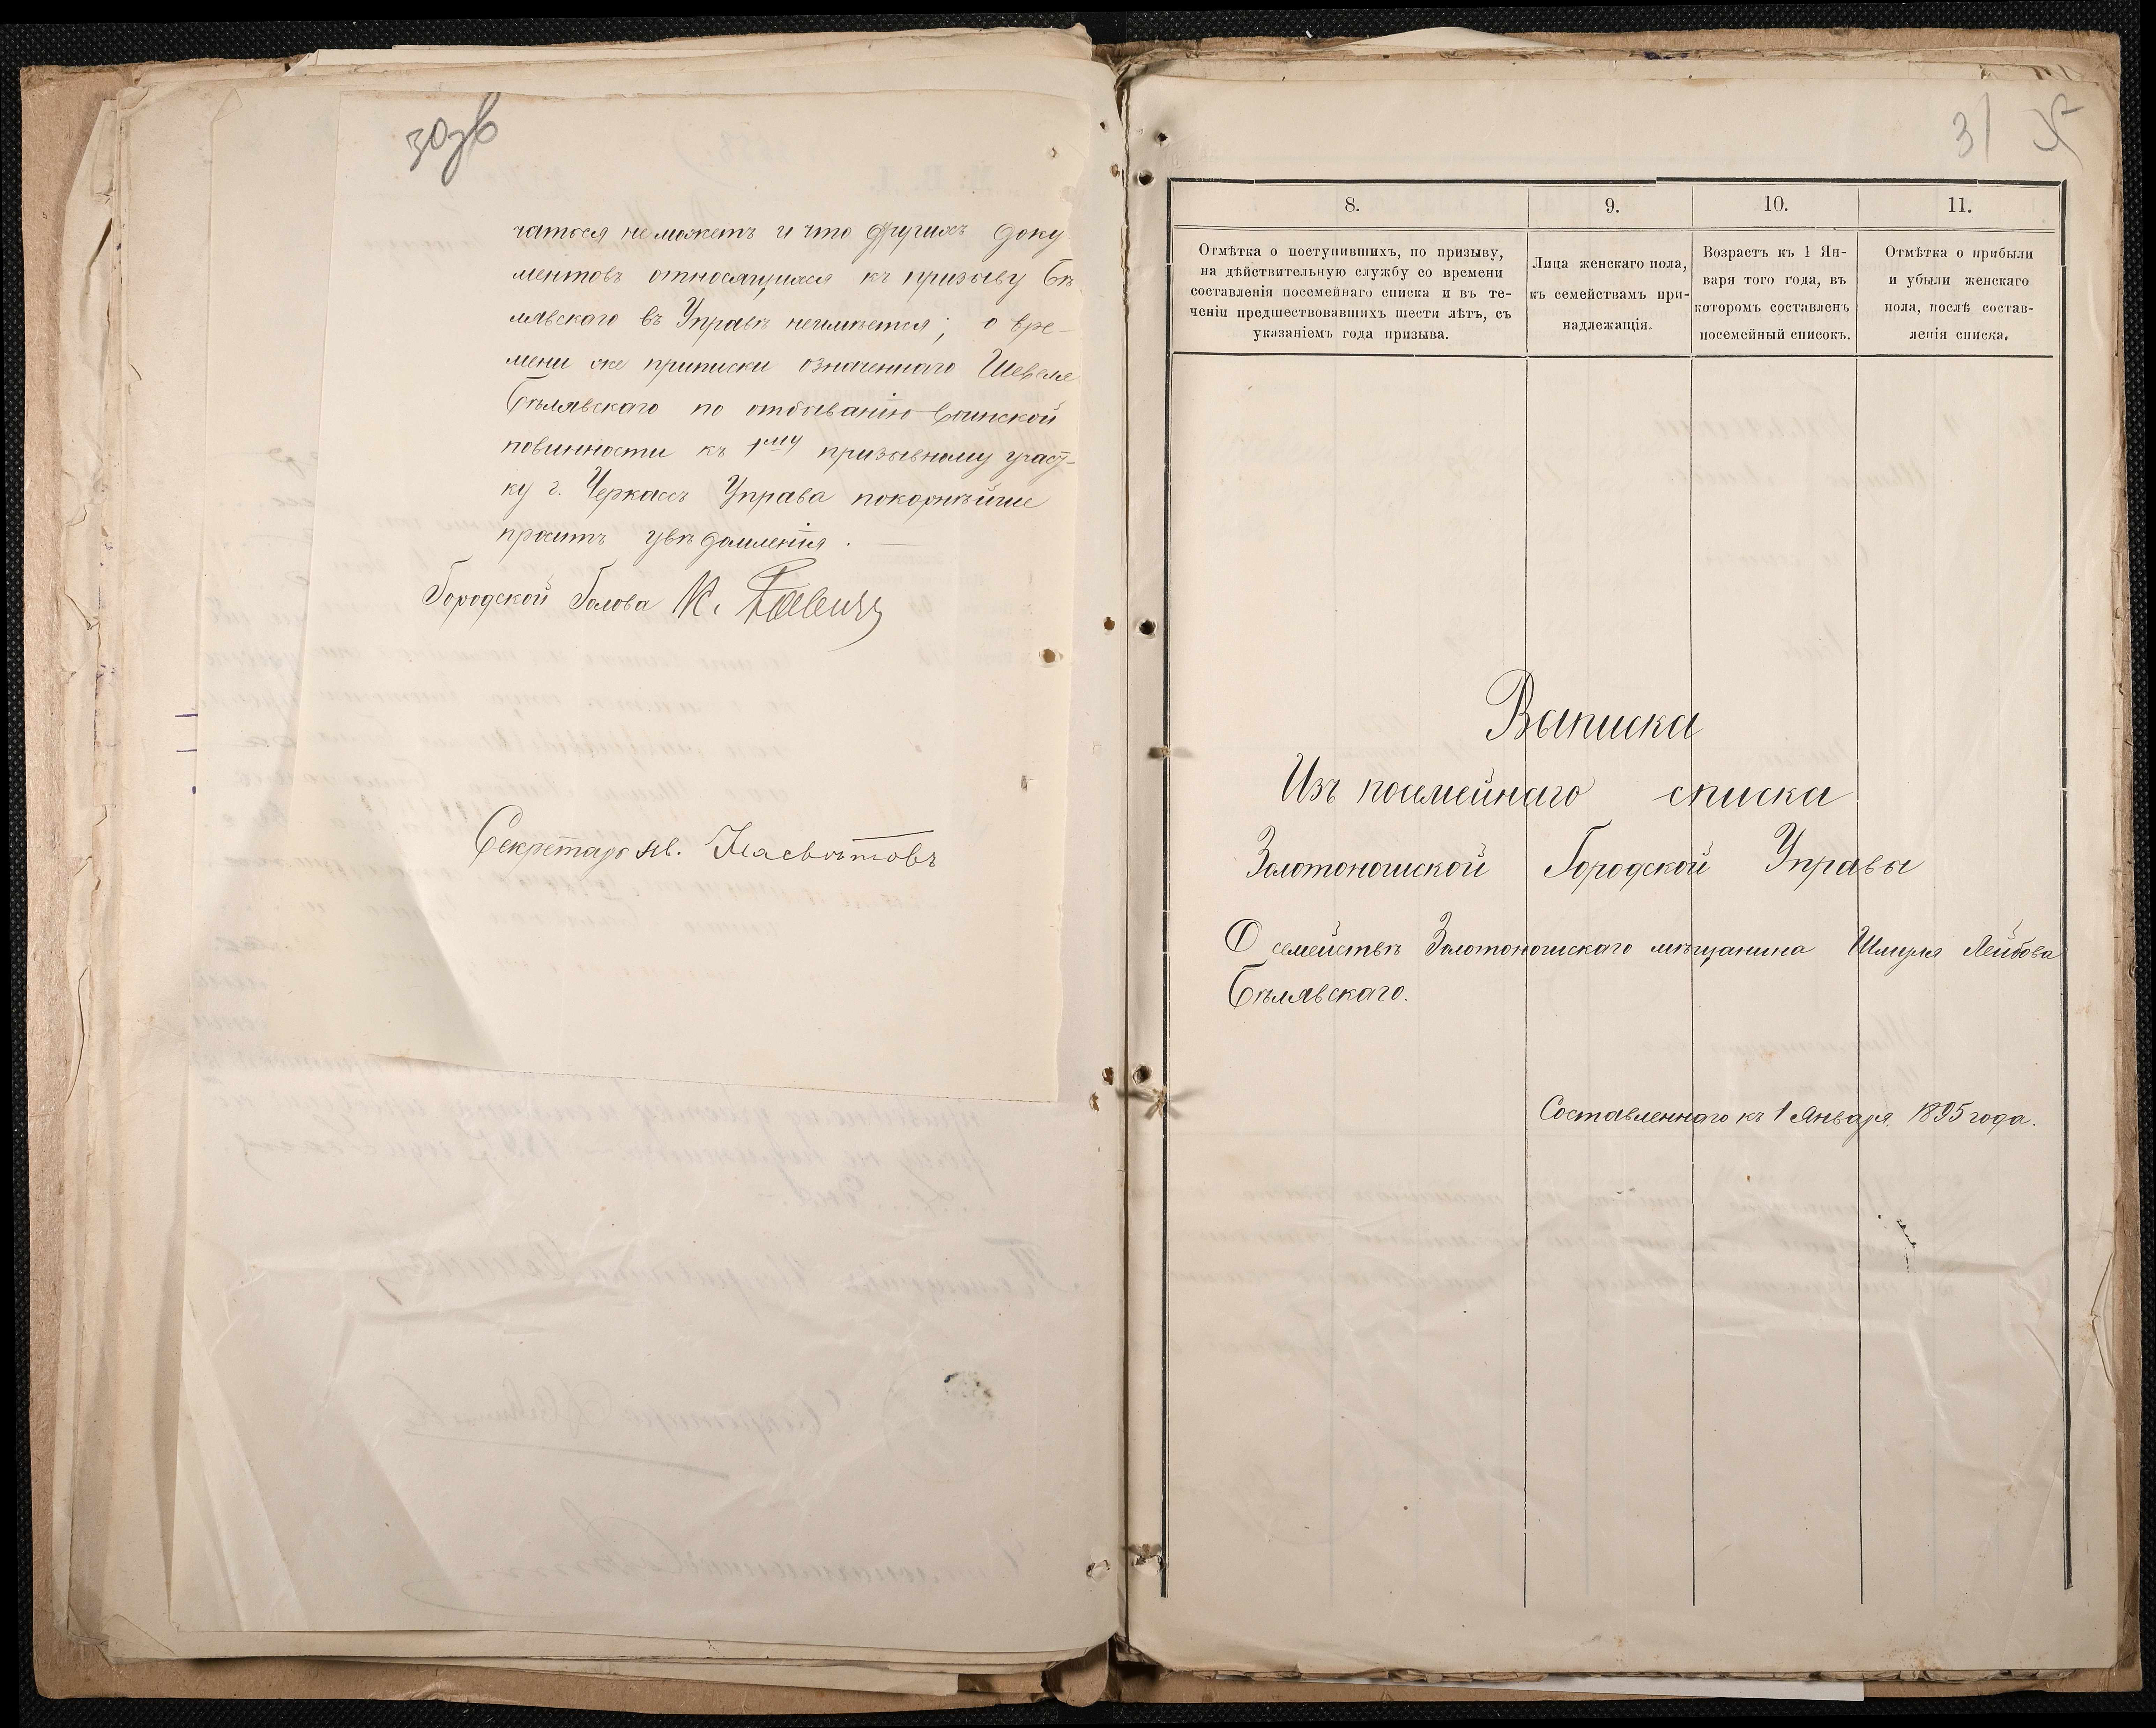 30зв
чаться неможетъ и что другихъ доку
ментовъ относящихся къ призыву Бѣ
лявскаго въ Управѣ неимѣется; о вре-
мени же приписки означеннаго Шевеля
Бѣлявскаго по отбыванію воинской
повинности къ 1му призывному участ-
ку г. Черкассъ Управа покорнѣйше
проситъ увѣдомленія.
Городской Голова К.
Секретарь
31
8.
9.
10.
11.
Отмѣтка о поступившихъ, по призыву,
на дѣйствительную службу со времени
составленія посемейнаго списка и въ те-
ченіи предшествовавшихъ шести лѣтъ, съ
указаніемъ года призыва.
Лица женскаго пола,
къ семействамъ при-
надлежащія.
Возрастъ къ 1 Ян-
варя того года, въ
которомъ составленъ
посемейный списокъ.
Отмѣтка о прибыли
и убыли женскаго
пола, послѣ состав-
ленія списка.
Выписка
Изъ посемейнаго списка
Золотоношской Городской Управы
О семействѣ Золотоношскаго мѣщанина Шмуля Лейбова
Бѣлявскаго.
Составленнаго къ 1 Января 1895 года.